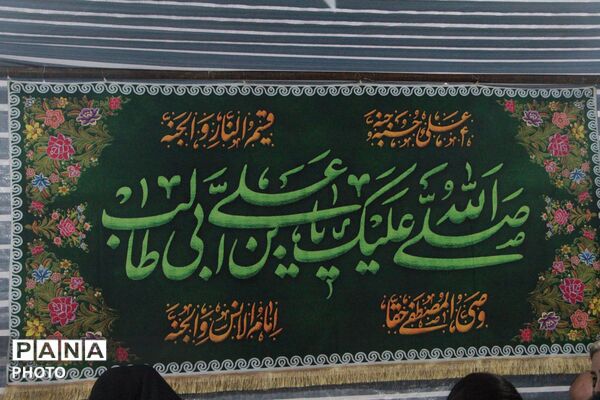 علی حبه جنة
قسیم النار والجنة
صلی الله علیک یا علی بن ابی طالب
وصی المصطفی حقا
امام الانس والجنة
PANA
PHOTO